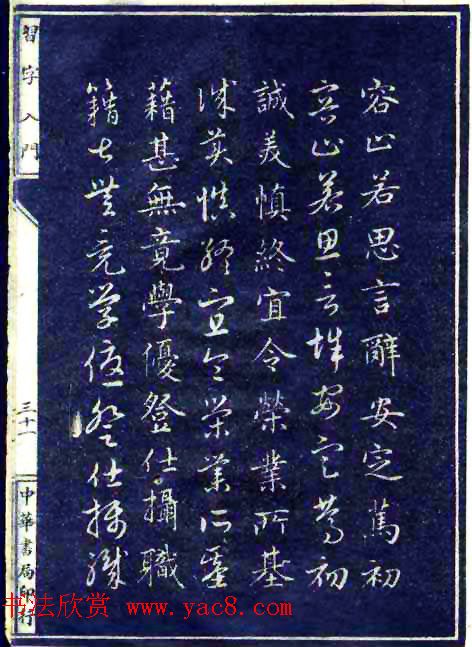 容止若思言辭安定篤初
容止若思言辭安定篤初
誠美慎終宜令榮業所基
誠美慎終宜令榮業所基
藉甚無竟學優登仕攝職
籍甚無竟學優登仕攝職
習字入門
三十一
中華書局印行
书法欣赏 www.yac8.com